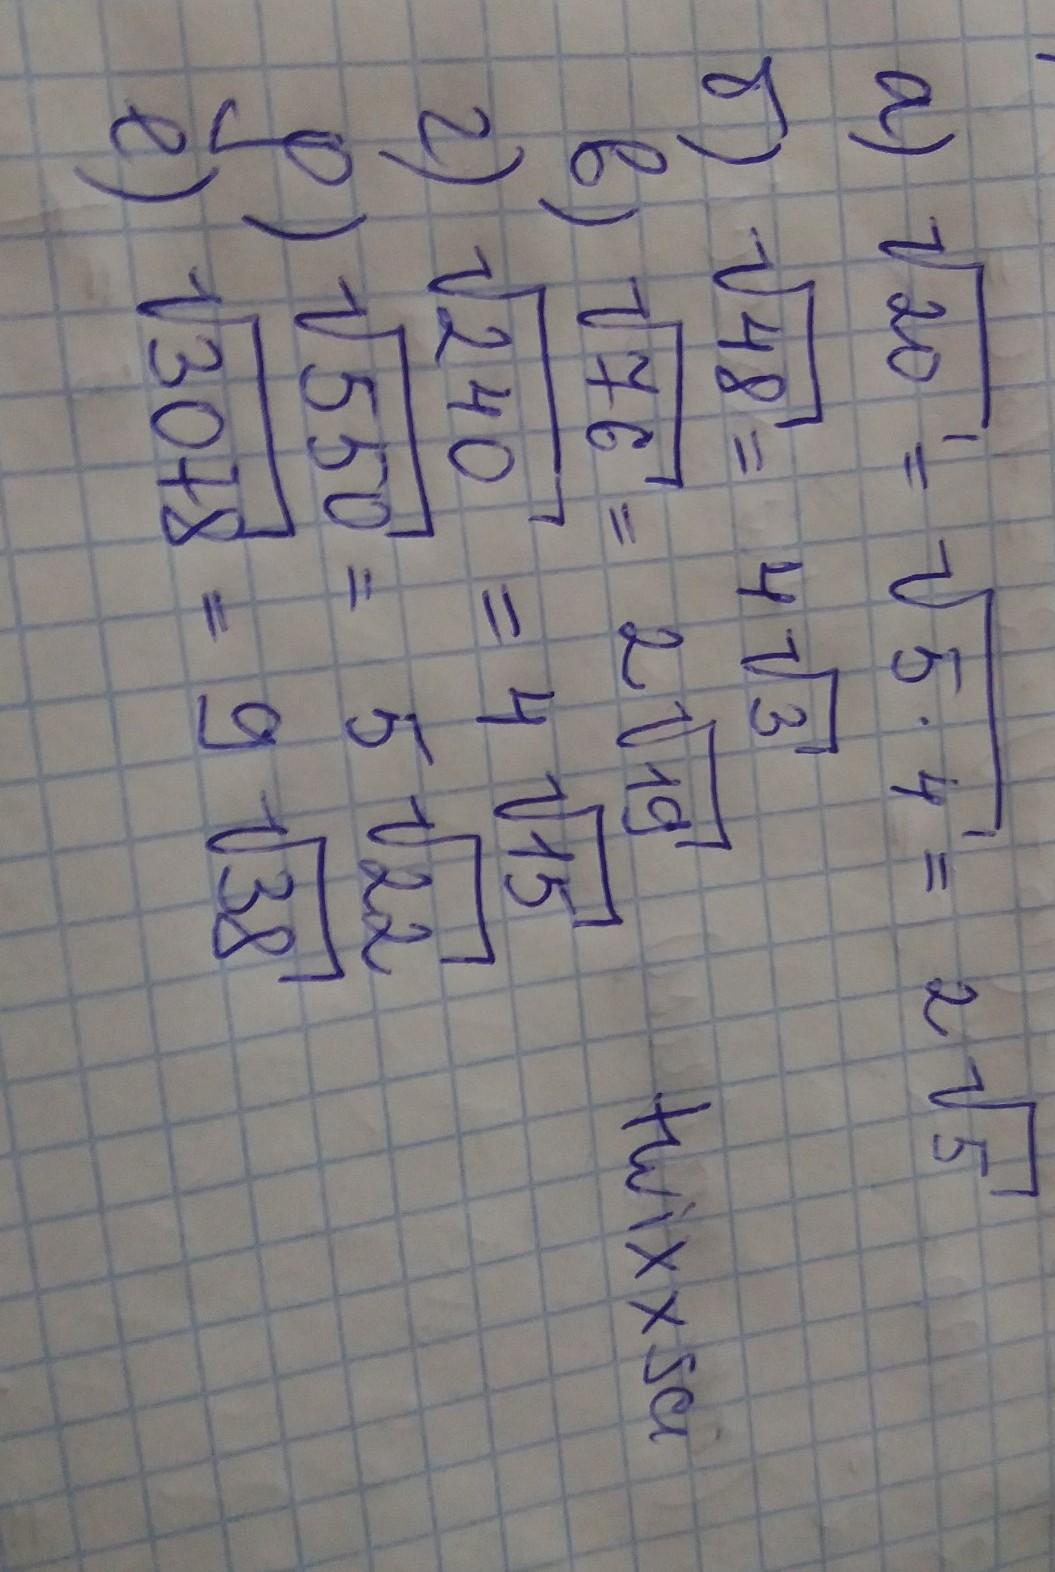 а) √20 = √5·4 = 2√5
б) √48 = 4√3
в) √76 = 2√19
г) √240 = 4√15
д) √550 = 5√22
е) √3078 = 9√38
twixxsa